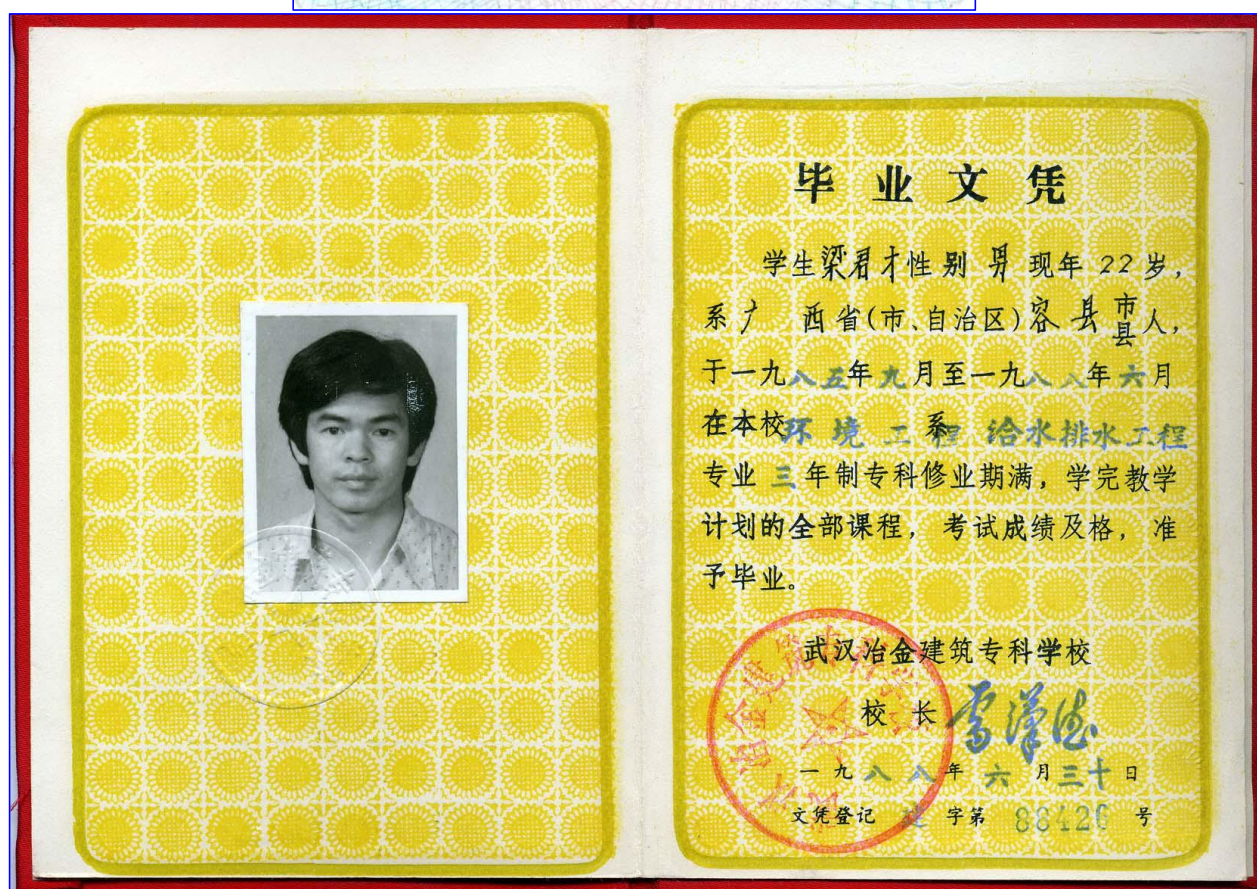 毕业文凭
学生梁君才性别 男 现年 22 岁,
系广 西省(市、自治区)容县市县人,
于一九八五年九月至一九八八年六月
在本校环境工程系给水排水工程
专业三年制专科修业期满,学完教学
计划的全部课程,考试成绩及格,准
予毕业。
武汉冶金建筑专科学校
校长 雷汉德
一九八八年六月三十日
文凭登记 建 字第 88420 号